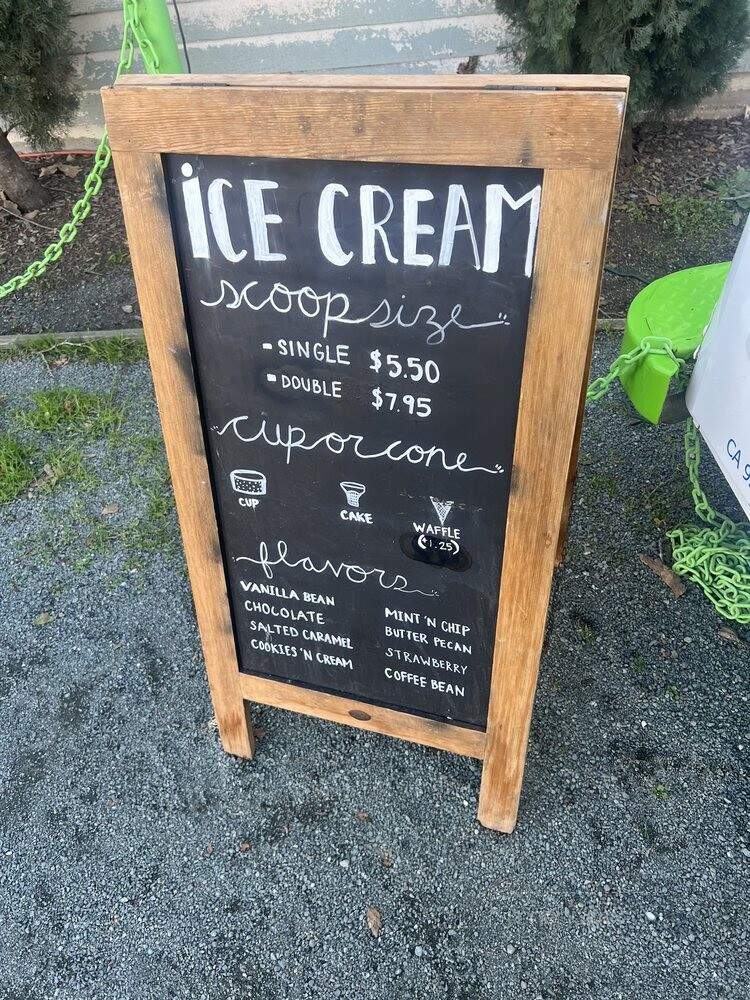 iCE CREAM
scoop size
- SINGLE $5.50
- DOUBLE $7.95
cup or cone
CUP
CAKE
WAFFLE
(+1.25)
flavors
VANILLA BEAN
CHOCOLATE
SALTED CARAMEL
COOKIES 'N CREAM
MINT 'N CHIP
BUTTER PECAN
STRAWBERRY
COFFEE BEAN
CA